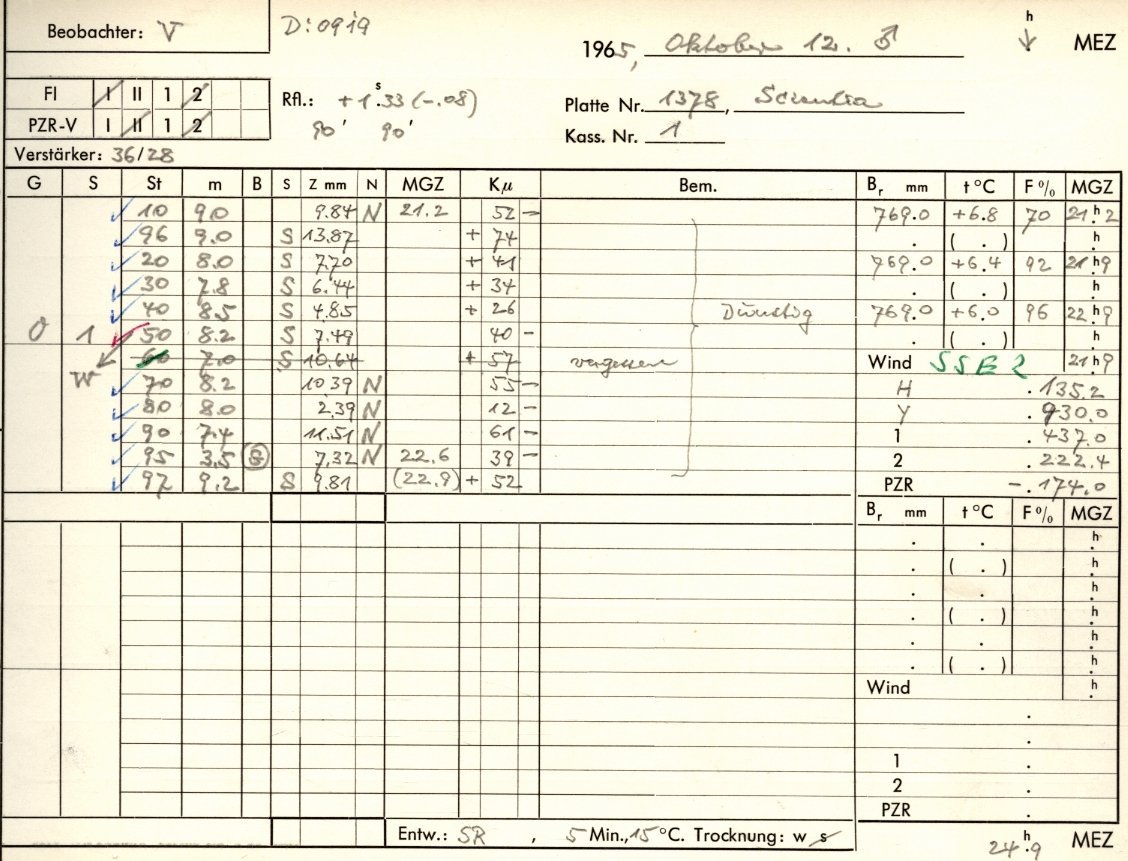 Beobachter: V D: 0919 1965, Oktober 12. ♂ h MEZ
FI I II 1 2 Rfl.: +1.ˢ33 (-.08) Platte Nr. 1378, Scientia
PZR-V I II 1 2 90' 90' Kass. Nr. 1
Verstärker: 36/28
G S St m B S Z mm N MGZ Kμ Bem. Bᵣ mm t °C F % MGZ
10 9.0 9.84 N 21.2 52 - 769.0 +6.8 70 21ʰ.2
96 9.0 S 13.87 + 74 . ( . ) ʰ.
20 8.0 S 7.70 + 41 769.0 +6.4 92 21ʰ.9
30 7.8 S 6.44 + 34 . ( . ) ʰ.
40 8.5 S 4.85 + 26 Dunstig 769.0 +6.0 96 22ʰ.9
0 1 50 8.2 S 7.49 40 - . ( . ) ʰ.
W 60 7.0 S 10.64 + 57 vergessen Wind SSE 2 21ʰ.9
70 8.2 10.39 N 55 - H .135.2
80 8.0 2.39 N 12 - Y .930.0
90 7.4 11.51 N 61 - 1 .437.0
95 3.5 G 7.32 N 22.6 39 - 2 .222.4
97 9.2 S 9.81 (22.9) + 52 PZR -.174.0
Bᵣ mm t °C F % MGZ
. . ʰ.
. ( . ) ʰ.
. . ʰ.
. ( . ) ʰ.
. . ʰ.
. ( . ) ʰ.
Wind ʰ.
.
.
1 .
2 .
PZR .
Entw.: SR , 5 Min., 15 °C. Trocknung: w s 24ʰ.9 MEZ